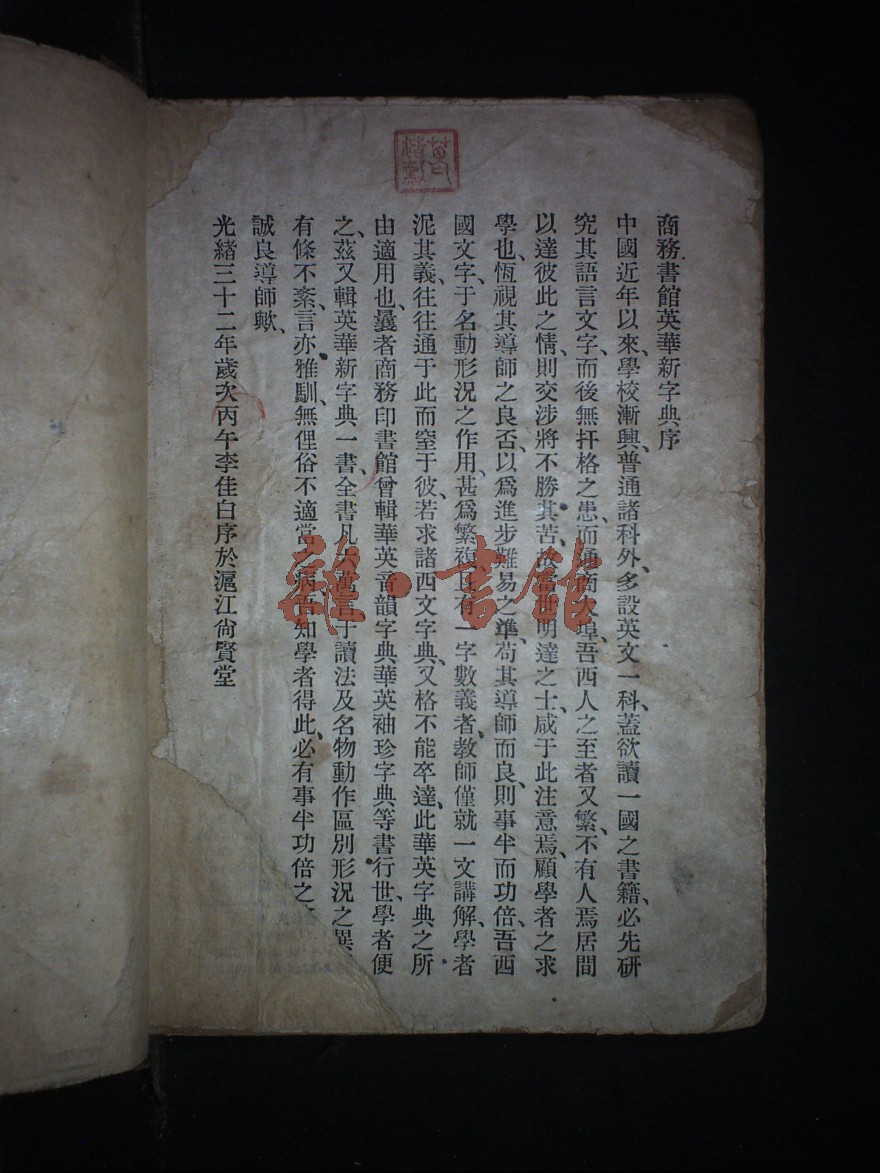 商務書館英華新字典序
中國近年以來學校漸興、普通諸科外、多設英文一科、蓋欲讀一國之書籍、必先研
究其語言文字、而後無扞格之患、而通商大埠、吾西人之至者又繁、不有人焉居間
以達彼此之情、則交涉將不勝其苦、故當世明達之士、咸于此注意焉、顧學者之求
學也、恆視其導師之良否、以爲進步難易之準、苟其導師而良、則事半而功倍、吾西
國文字、于名動形況之作用、甚爲繁複、且有一字數義者、教師僅就一文講解、學者
泥其義、往往通于此而窒于彼、若求諸西文字典、又格不能卒達、此華英字典之所
由適用也、曩者商務印書館曾輯華英音韻字典華英袖珍字典等書行世、學者便
之、茲又輯英華新字典一書、全書凡六萬言、于讀法及名物動作區別形況之異
有條不紊、言亦雅馴、無俚俗不適當之病、吾知學者得此、必有事半功倍之
誠良導師歟、
光緒三十二年歲次丙午李佳白序於滬江尙賢堂
雜·書館